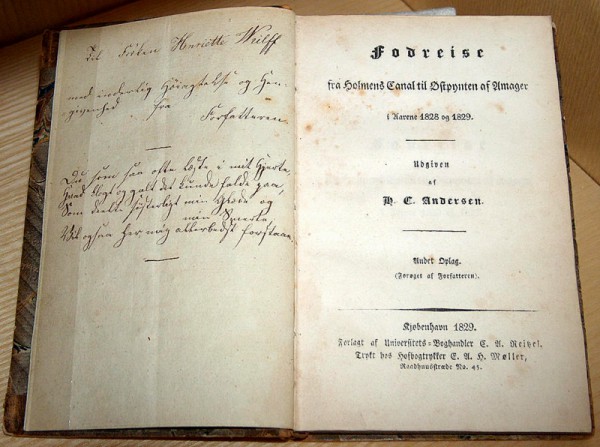 Til Frøken Henriette Wulff
med inderlig Høiagtelse og Hen-
givenhed fra
Forfatteren.
Du som saa ofte læste i mit Hjerte,
Hvad klogt og galt det kunde falde paa,
Som deelte søsterligt min Glæde og
min Smerte,
Vil ogsaa her mig allerbedst forstaae.
Fodreise
fra Holmens Canal til Østpynten af Amager
i Aarene 1828 og 1829.
Udgiven
af
H. C. Andersen.
Andet Oplag.
(Forøget af Forfatteren).
Kjøbenhavn 1829.
Forlagt af Universitets-Boghandler C. A. Reitzel.
Trykt hos Hofbogtrykker E. A. H. Møller,
Raadhuusstræde No. 45.